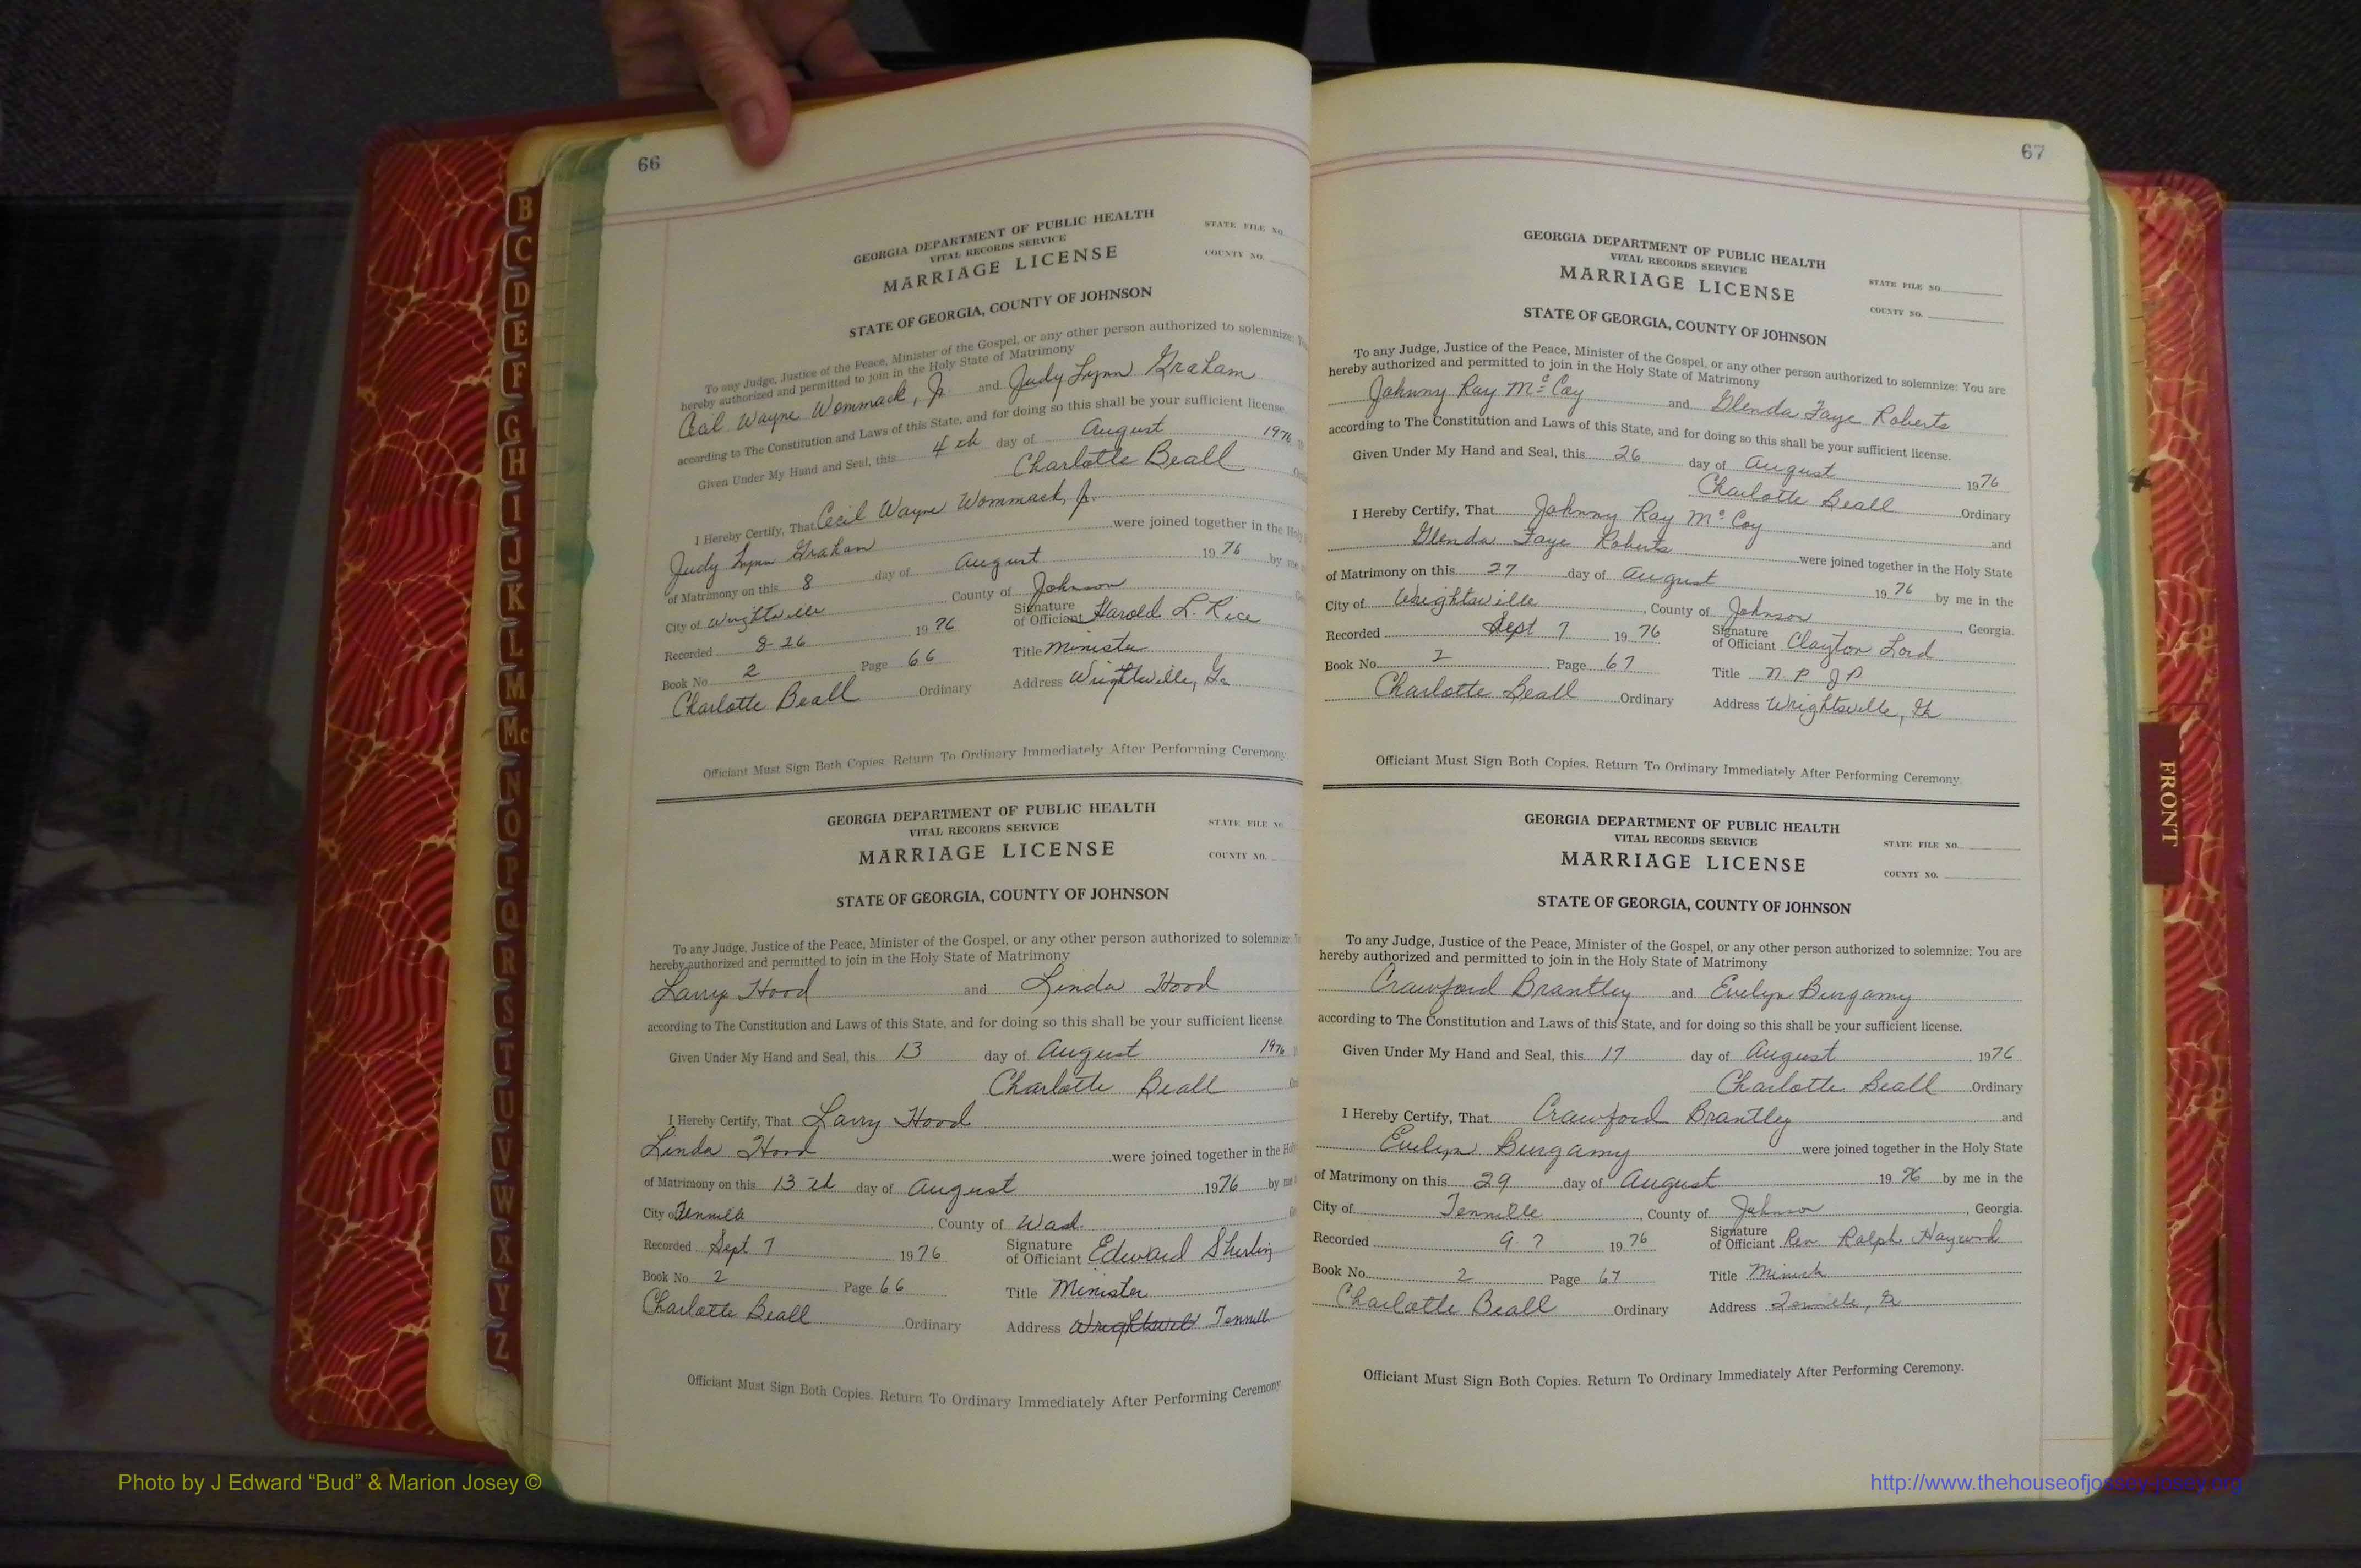 66
GEORGIA DEPARTMENT OF PUBLIC HEALTH
VITAL RECORDS SERVICE
MARRIAGE LICENSE
STATE FILE NO.
COUNTY NO.
STATE OF GEORGIA, COUNTY OF JOHNSON
To any Judge, Justice of the Peace, Minister of the Gospel, or any other person authorized to solemnize:
hereby authorized and permitted to join in the Holy State of Matrimony
Cecil Wayne Wommack, Jr. and Judy Lynn Graham
according to The Constitution and Laws of this State, and for doing so this shall be your sufficient license.
Given Under My Hand and Seal, this 4th day of August 1976
Charlotte Beall
I Hereby Certify, That Cecil Wayne Wommack, Jr.
Judy Lynn Graham were joined together in the
of Matrimony on this 8 day of August 1976 by
City of Wrightsville County of Johnson
Recorded 8-26 1976 Signature of Officiant Harold L. Rice
Book No. 2 Page 66 Title Minister
Charlotte Beall Ordinary Address Wrightsville, Ga
Officiant Must Sign Both Copies. Return To Ordinary Immediately After Performing Ceremony
GEORGIA DEPARTMENT OF PUBLIC HEALTH
VITAL RECORDS SERVICE
MARRIAGE LICENSE
STATE FILE NO
COUNTY NO.
STATE OF GEORGIA, COUNTY OF JOHNSON
To any Judge, Justice of the Peace, Minister of the Gospel, or any other person authorized to solemnize:
hereby authorized and permitted to join in the Holy State of Matrimony
Larry Hood and Linda Hood
according to The Constitution and Laws of this State, and for doing so this shall be your sufficient license.
Given Under My Hand and Seal, this 13 day of August 1976
Charlotte Beall
I Hereby Certify, That Larry Hood
Linda Hood were joined together in the
of Matrimony on this 13th day of August 1976 by
City of Tennille, County of Wash.
Recorded Sept 7 1976 Signature of Officiant Edward
Book No. 2 Page 66 Title Minister
Charlotte Beall Ordinary Address Tennille
Officiant Must Sign Both Copies. Return To Ordinary Immediately After Performing Ceremony
67
GEORGIA DEPARTMENT OF PUBLIC HEALTH
VITAL RECORDS SERVICE
MARRIAGE LICENSE
STATE FILE NO.
COUNTY NO.
STATE OF GEORGIA, COUNTY OF JOHNSON
To any Judge, Justice of the Peace, Minister of the Gospel, or any other person authorized to solemnize: You are
hereby authorized and permitted to join in the Holy State of Matrimony
Johnny Ray McCoy and Glenda Faye Roberts
according to The Constitution and Laws of this State, and for doing so this shall be your sufficient license.
Given Under My Hand and Seal, this 26 day of August 1976
Charlotte Beall Ordinary
I Hereby Certify, That Johnny Ray McCoy and
Glenda Faye Roberts were joined together in the Holy State
of Matrimony on this 27 day of August 1976 by me in the
City of Wrightsville, County of Johnson, Georgia.
Recorded Sept 7 1976 Signature of Officiant Clayton Lord
Book No. 2 Page 67 Title N.P. J.P.
Charlotte Beall Ordinary Address Wrightsville, Ga
Officiant Must Sign Both Copies. Return To Ordinary Immediately After Performing Ceremony.
GEORGIA DEPARTMENT OF PUBLIC HEALTH
VITAL RECORDS SERVICE
MARRIAGE LICENSE
STATE FILE NO.
COUNTY NO.
STATE OF GEORGIA, COUNTY OF JOHNSON
To any Judge, Justice of the Peace, Minister of the Gospel, or any other person authorized to solemnize: You are
hereby authorized and permitted to join in the Holy State of Matrimony
Crawford Brantley and Evelyn Burgamy
according to The Constitution and Laws of this State, and for doing so this shall be your sufficient license.
Given Under My Hand and Seal, this 17 day of August 1976
Charlotte Beall Ordinary
I Hereby Certify, That Crawford Brantley and
Evelyn Burgamy were joined together in the Holy State
of Matrimony on this 29 day of August 1976 by me in the
City of Tennille, County of Johnson, Georgia.
Recorded 9 7 1976 Signature of Officiant Rev Ralph Haywood
Book No. 2 Page 67 Title
Charlotte Beall Ordinary Address
Officiant Must Sign Both Copies. Return To Ordinary Immediately After Performing Ceremony.
B
C
D
E
F
G
H
I
J
K
L
M
Mc
N
O
P
Q
R
S
T
U
V
W
X
Y
Z
FRONT
Photo by J Edward “Bud” & Marion Josey ©
http://www.thehouseofjossey-josey.org